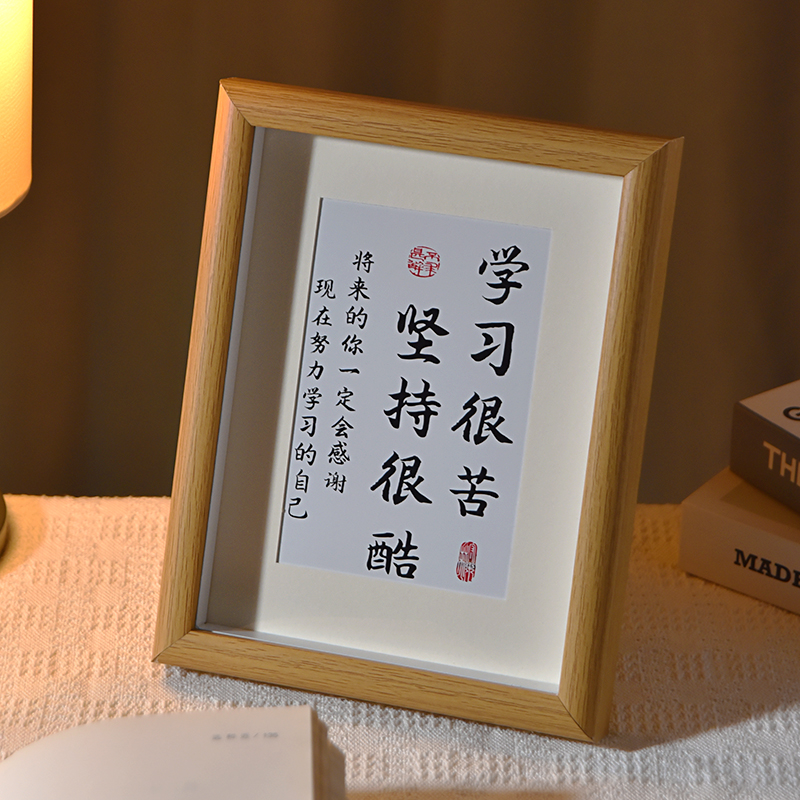 学习很苦
坚持很酷
将来的你一定会感谢
现在努力学习的自己
TH
MADE